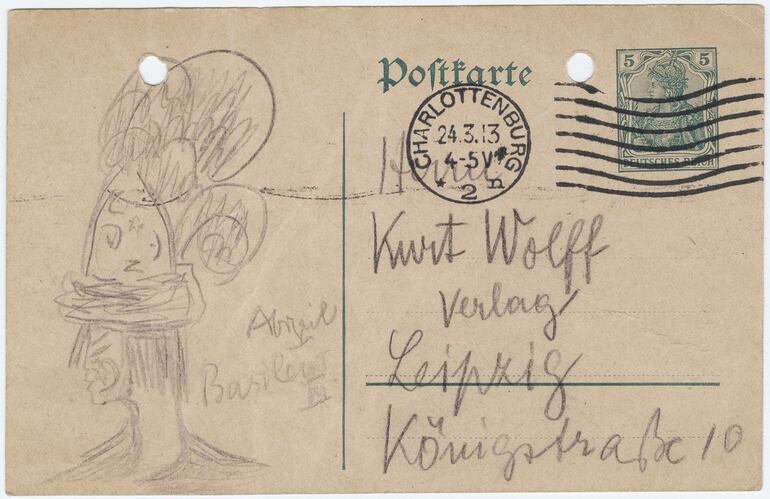 Postkarte
5 5
DEUTSCHES REICH
CHARLOTTENBURG
24.3.13
4-5V
* 2 n
Herrn
Kurt Wolff
Verlag
Leipzig
Königstraße 10
Abigail
Basileus
III